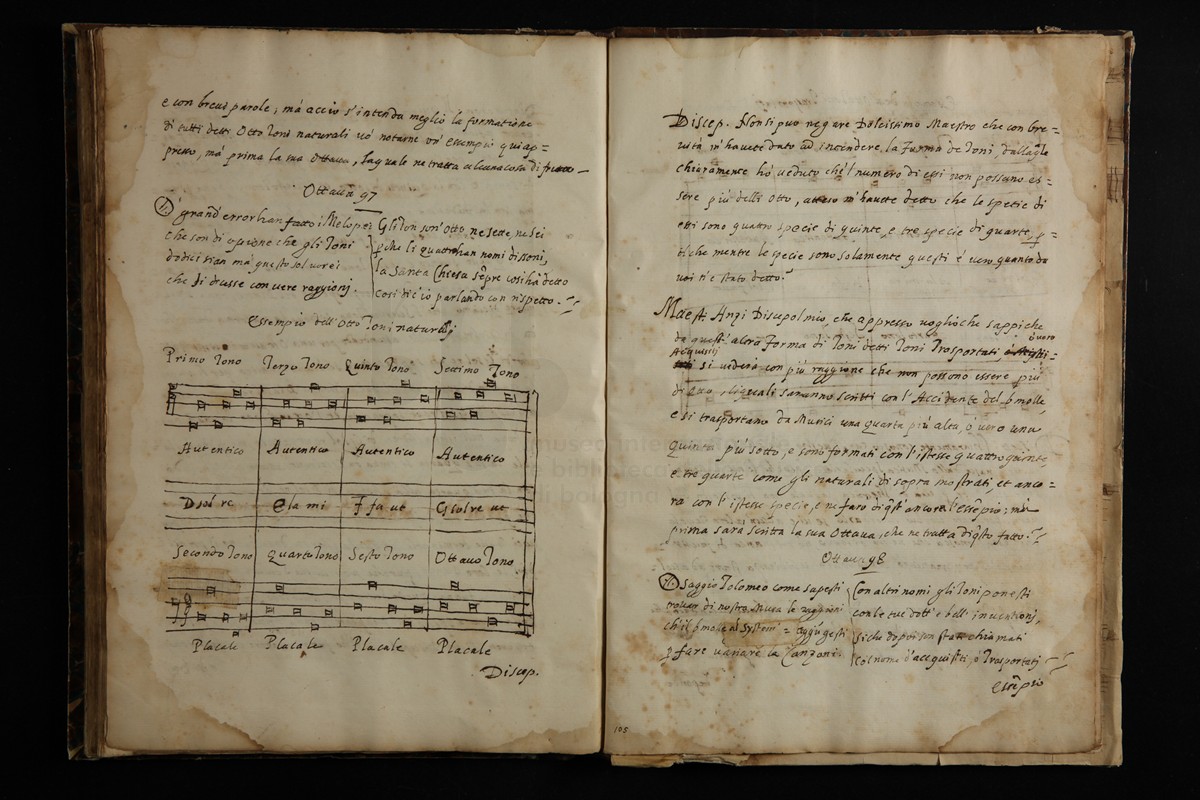 e con brevi parole; má accio s'intenda meglio la formatione
di tutti detti Otto Toni naturali vó notarne un' essempio qui ap=
presso, má prima la sua Ottava, laquale ne tratta alcuna cosa di
Ottava 97
grand' error han fatto i Melopei
che son di opinione che gli Toni
dodici sian má questo sol vorei
che si dicesse con vere raggionj.
Gli Ton son' Otto ne sette, ne sei
p che li quattro han nomi di suoni,
la Santa Chiesa sēpre così há detto
così dic'io parlando con rispetto.
Essempio dell' Otto Toni naturalj
Primo Tono Terzo Tono Quinto Tono Settimo Tono
Autentico Autentico Autentico Autentico
D sol re E la mi F fa ut G solre ut
Secondo Tono Quarto Tono Sesto Tono Ottavo Tono
Placale Placale Placale Placale
Discep.
Discep. Non si puo negare Dolcissimo Maestro che con bre=
vitá m'havete dato ad intendere la forma de Toni dalla qle
chiaramente hó veduto che'l numero di essi non possano es=
sere piú delli otto, atteso m'havete detto che le spetie di
essi sono quattro specie di quinte, e tre specie di quarte, p=
ilche mentre le specie sono solamente questi é vero quanto da
voi n'é stato detto.
Maest. Anzi Discepol mio, che appresso voglio che sappiche
da quest' altra forma di Toni detti Toni Trasportati, ó vero
Acquisiti si vedera con piú raggione che non possono essere piú
di otto, li quali saranno scritti con l'Accidente del b molle,
e si trasportano da Musici una quarta piú alta, ó vero una
quinta piú sotto, e sono formati con l'istesse quattro quinte,
e tre quarte come gli naturali di sopra mostrati, et anco=
ra con l'istesse specie, e ne faro di qsti ancora l'essēpio; má
prima sara scritta la sua Ottava, che ne tratta di qsto fatto.
Ottava 98
saggio Tolomeo come sapesti
trovar di nostra Musa le raggioni
ch' il b molle al System' aggiugesti
p fare variare la Canzoni.
Con altri nomi gli Toni ponesti
con le tue dott' e bell' inventionj,
siche dopoi son stati chiamati
col nome d'acquisiti, ó Trasportatj
Essēpio
105
museo internazionale
biblioteca
di bologna